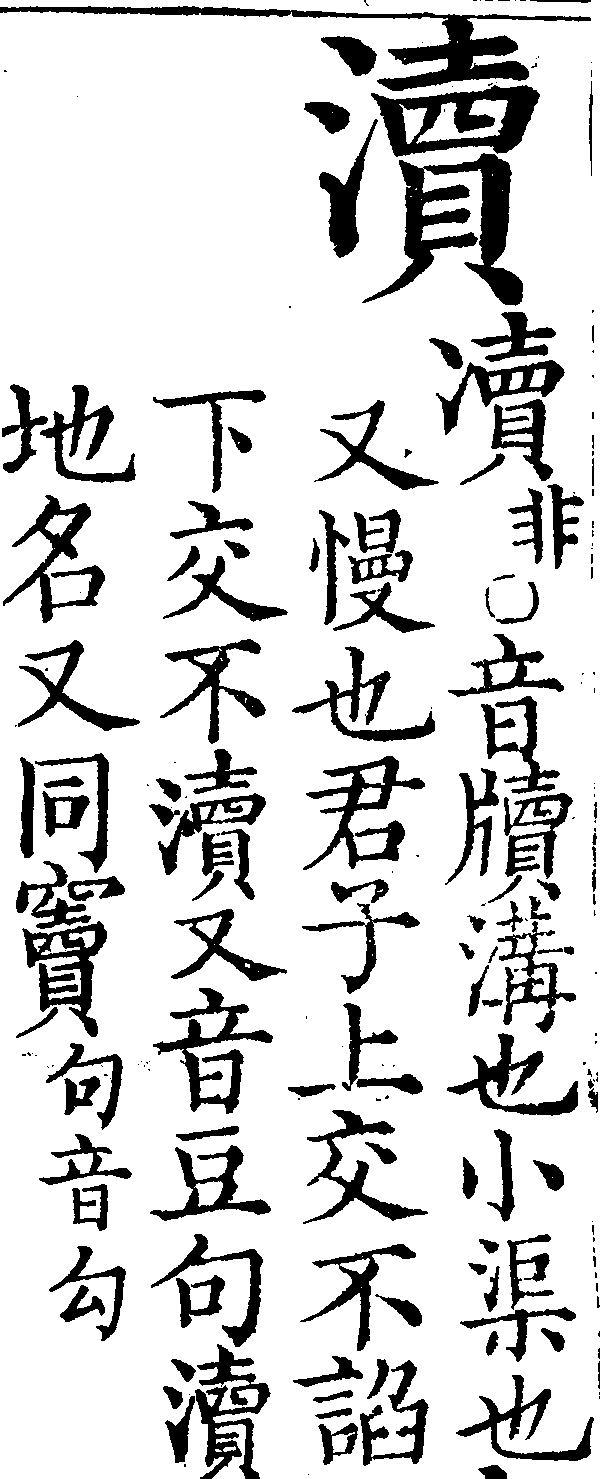 瀆
瀆非○音牘溝也小渠也
又慢也君子上交不諂
下交不瀆又音豆句瀆
地名又同竇句音勾